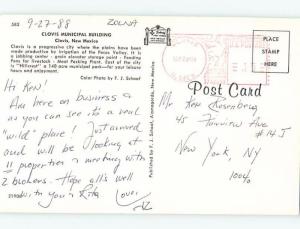 582
9-27-88
ZOLNA
CLOVIS MUNICIPAL BUILDING
Clovis, New Mexico
Clovis is a progressive city where the plains have been
made productive by irrigation of the Pecos Valley. It is
a jobbing center - grain elevator storage point - Feeding
Pens for livestock - Meat Packing Plant. East of the city
is "Hillcrest" a 140 acre municipal park for your leisure
hours and enjoyment.
Color Photo by F. J. Schaaf
Hi Ken!
Am here on business &
as you can see its a real
"wild" place! Just arrived
and will be looking at
11 properties & meeting with
2 brokers. Hope all's well
with you & Rita
Love,
Published by F. J. Schaaf, Alamogordo, New Mexico
PLACE
STAMP
HERE
Post Card
Mr Ken Rosenberg
45 Fairview Ave
#14J
New York, NY
10040